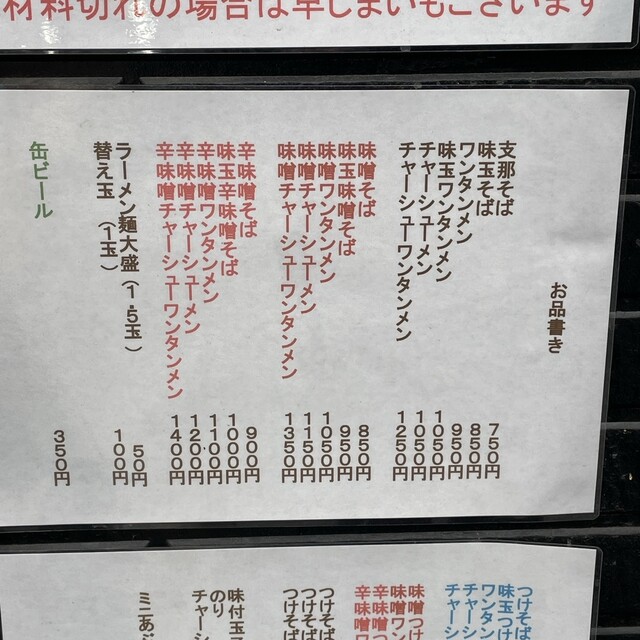 材料切れの場合は早じまいもございます
お品書き
支那そば 750円
味玉そば 850円
ワンタンメン 950円
味玉ワンタンメン 1050円
チャーシューメン 1050円
チャーシューワンタンメン 1250円
味噌そば 850円
味玉味噌そば 950円
味噌ワンタンメン 1050円
味噌チャーシューメン 1150円
味噌チャーシューワンタンメン 1350円
辛味噌そば 900円
味玉辛味噌そば 1000円
辛味噌ワンタンメン 1100円
辛味噌チャーシューメン 1200円
辛味噌チャーシューワンタンメン 1400円
ラーメン麺大盛(1.5玉) 50円
替え玉 (1玉) 100円
缶ビール 350円
つけそば
味玉つけ
ワンタン
チャーシ
チャーシ
味噌つけ
味噌ワン
辛味噌つ
辛味噌ワ
つけそば
つけそば
つけそば
味付玉
のり
チャーシ
ミニあぶ